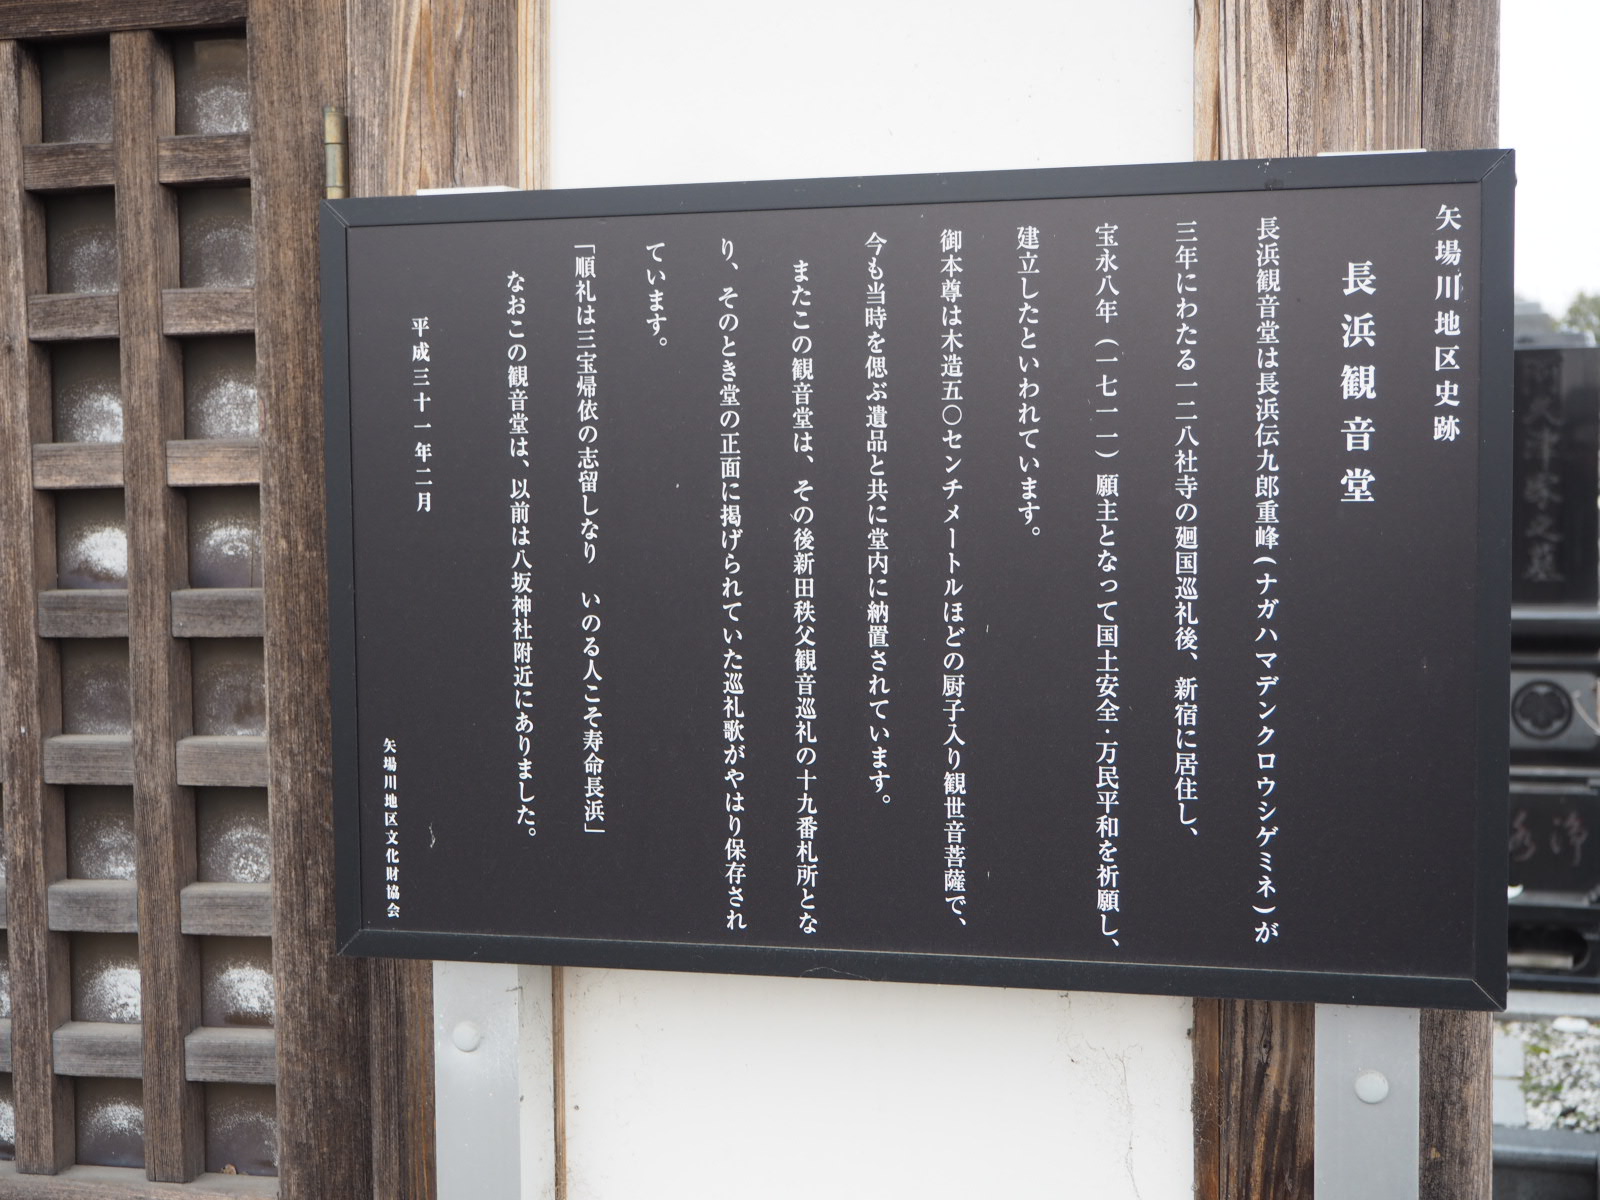 矢場川地区史跡
長浜観音堂
長浜観音堂は長浜伝九郎重峰(ナガハマデンクロウシゲミネ)が
三年にわたる一二八社寺の廻国巡礼後、新宿に居住し、
宝永八年(一七一一)願主となって国土安全・万民平和を祈願し、
建立したといわれています。
御本尊は木造五〇センチメートルほどの厨子入り観世音菩薩で、
今も当時を偲ぶ遺品と共に堂内に納置されています。
またこの観音堂は、その後新田秩父観音巡礼の十九番札所とな
り、そのとき堂の正面に掲げられていた巡礼歌がやはり保存され
ています。
「順礼は三宝帰依の志留しなり　いのる人こそ寿命長浜」
なおこの観音堂は、以前は八坂神社附近にありました。
平成三十一年二月
矢場川地区文化財協会